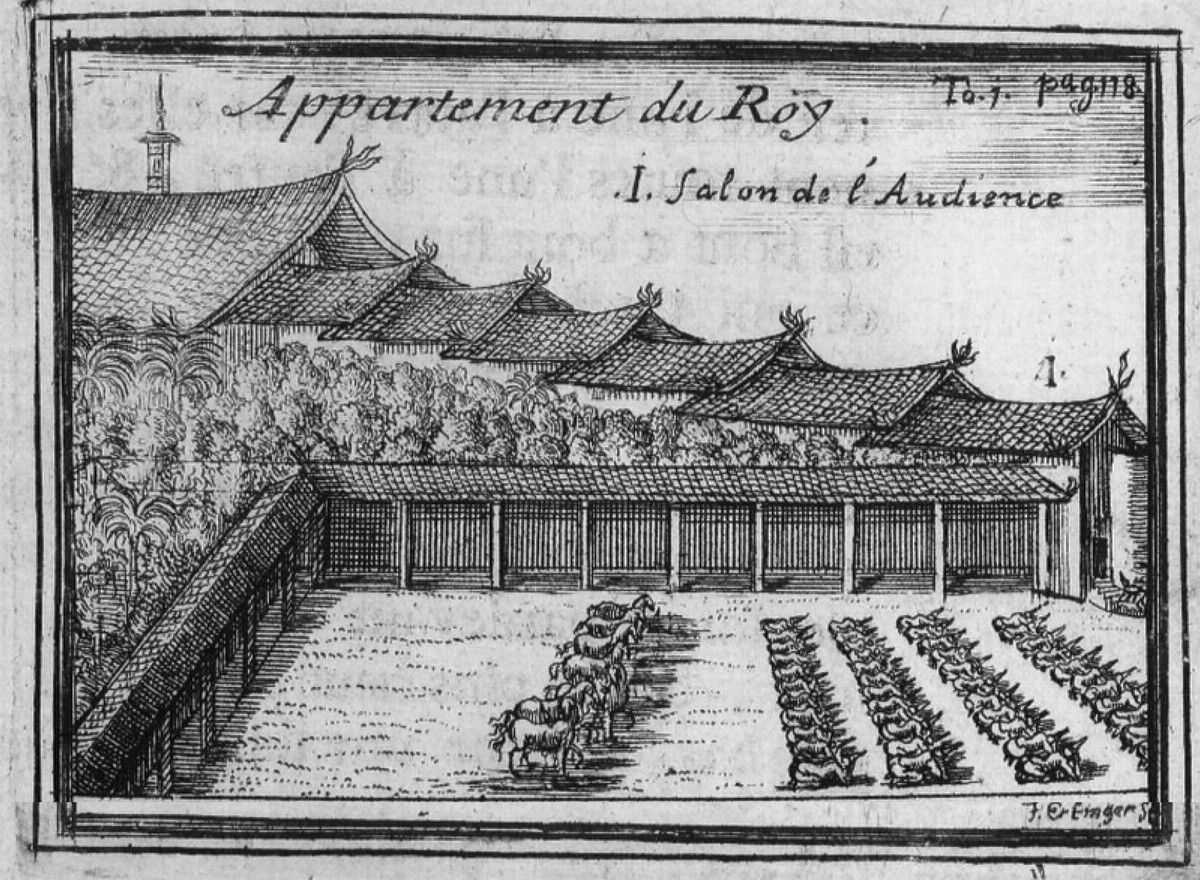 Appartement du Roy.
To. 1. pag. 118.
.1. Salon de l'Audience
1.
F. Ertinger Sc